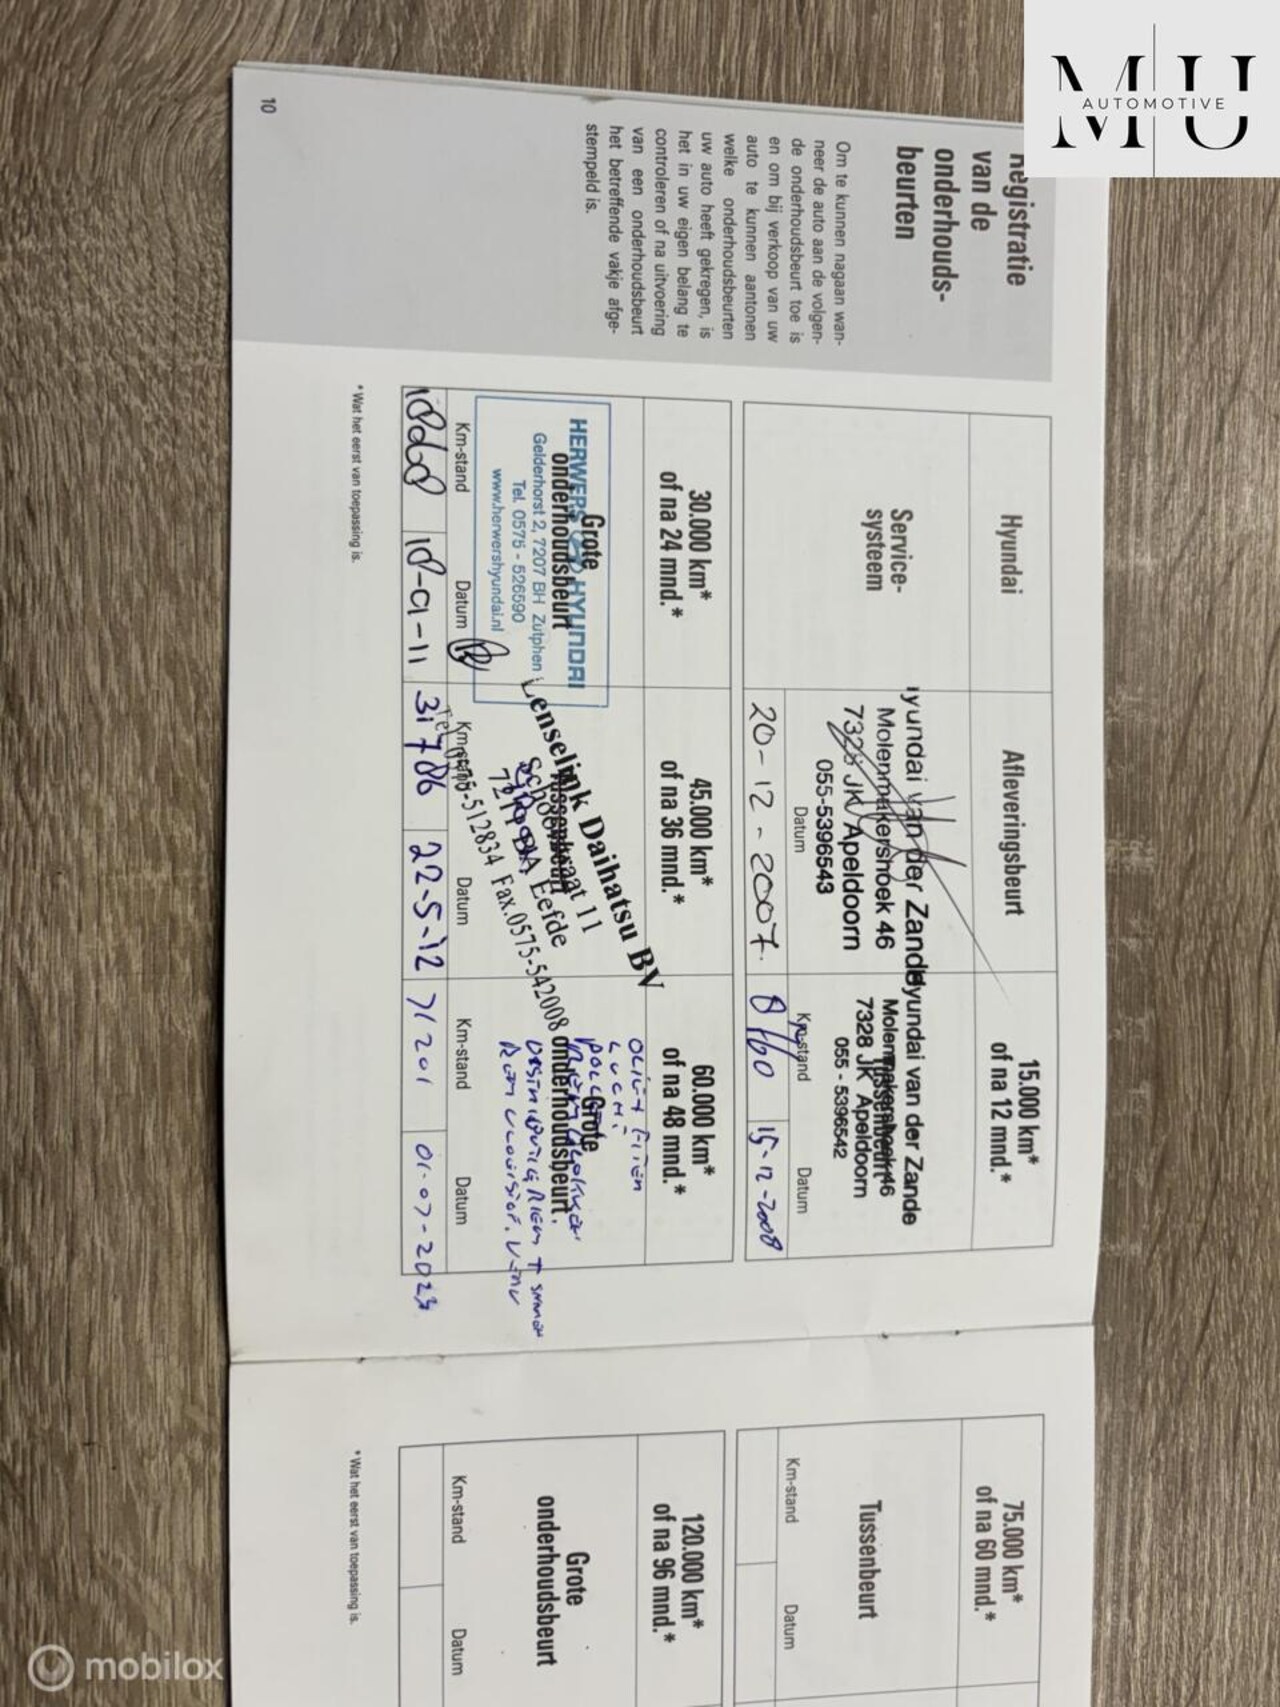 MU
AUTOMOTIVE
Registratie
van de
onderhouds-
beurten
Om te kunnen nagaan wan-
neer de auto aan de volgen-
de onderhoudsbeurt toe is
en om bij verkoop van uw
auto te kunnen aantonen
welke onderhoudsbeurten
uw auto heeft gekregen, is
het in uw eigen belang te
controleren of na uitvoering
van een onderhoudsbeurt
het betreffende vakje afge-
stempeld is.
10
Hyundai
Service-
systeem
Afleveringsbeurt
yundai van der Zande
Molenmakershoek 46
7328 JK Apeldoorn
055-5396543
Datum
20-12-2007.
15.000 km*
of na 12 mnd.*
Hyundai van der Zande
Molenmakershoek 46
Tussenbeurt
7328 JK Apeldoorn
055 - 5396542
Km-stand
Datum
8160
15-12-2008
30.000 km*
of na 24 mnd.*
Grote
onderhoudsbeurt
HERWERS HYUNDAI
Gelderhorst 2, 7207 BH Zutphen
Tel. 0575 - 526590
www.herwershyundai.nl
Km-stand
Datum
18-01-11
45.000 km*
of na 36 mnd.*
Tussenbeurt
Lenselink Daihatsu BV
11
7211 Eefde
512834 Fax.0575-542008
Km-stand
Datum
31786
22-5-12
60.000 km*
of na 48 mnd.*
Grote
onderhoudsbeurt.
Km-stand
Datum
71201
01-07-2023
* Wat het eerst van toepassing is.
75.000 km*
of na 60 mnd.*
Tussenbeurt
Km-stand
Datum
120.000 km*
of na 96 mnd.*
Grote
onderhoudsbeurt
Km-stand
Datum
* Wat het eerst van toepassing is.
mobilox